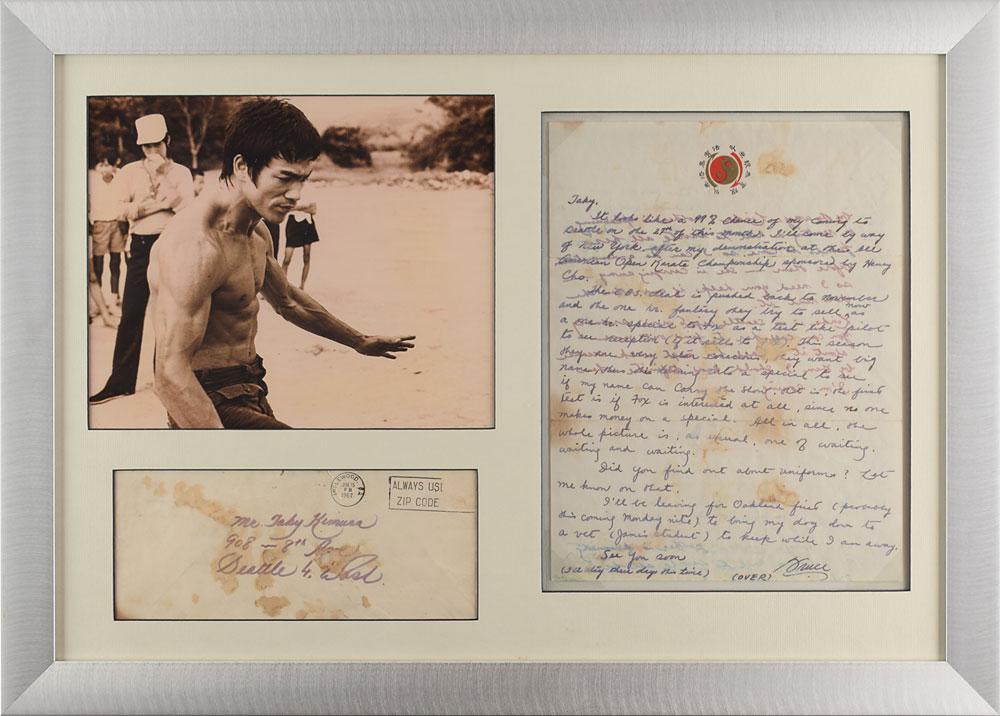 INGLEWOOD, CA
JUN 15
PM
1967
ALWAYS USE
ZIP CODE
Mr. Taky Kimura
908 - 8th Ave
Seattle 4, Wash.
Taky,
It looks like a 99% chance of my coming to
Seattle on the 27th of this month. I'll come by way
of New York after my demonstration at the All
American Open Karate Championship sponsored by Henry
Cho.
The deal is pushed back to November
and the one hr. fantasy they try to sell now as
a one hr. special to Fox as a test like pilot
to see reception (if it sells to). This season
they are very conscious, they want big
name, thus the going into a special to see
if my name can carry the show. That is, the first
test is if Fox is interested at all, since no one
makes money on a special. All in all, the
whole picture is, as usual, one of waiting,
waiting and waiting.
Did you find out about uniforms? Let
me know on that.
I'll be leaving for Oakland first (probably
this coming Monday nite) to bring my dog down to
a vet (James student) to keep while I am away.
See you soon
(I'll stay three days this time)
(OVER)
Bruce